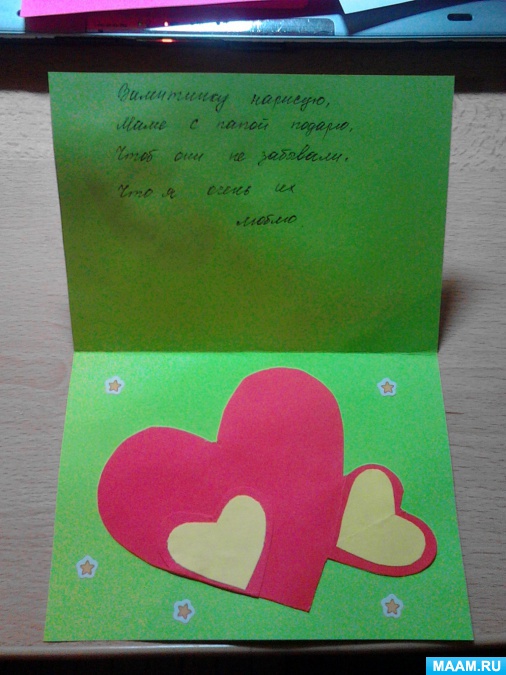 Валентинку нарисую,
Маме с папой подарю.
Чтоб они не забывали.
Что я очень их
люблю
MAAM.RU